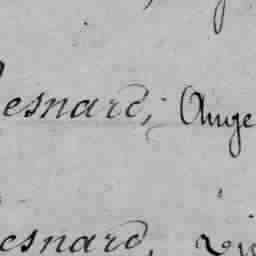 esnard, Ange
esnard, Vi